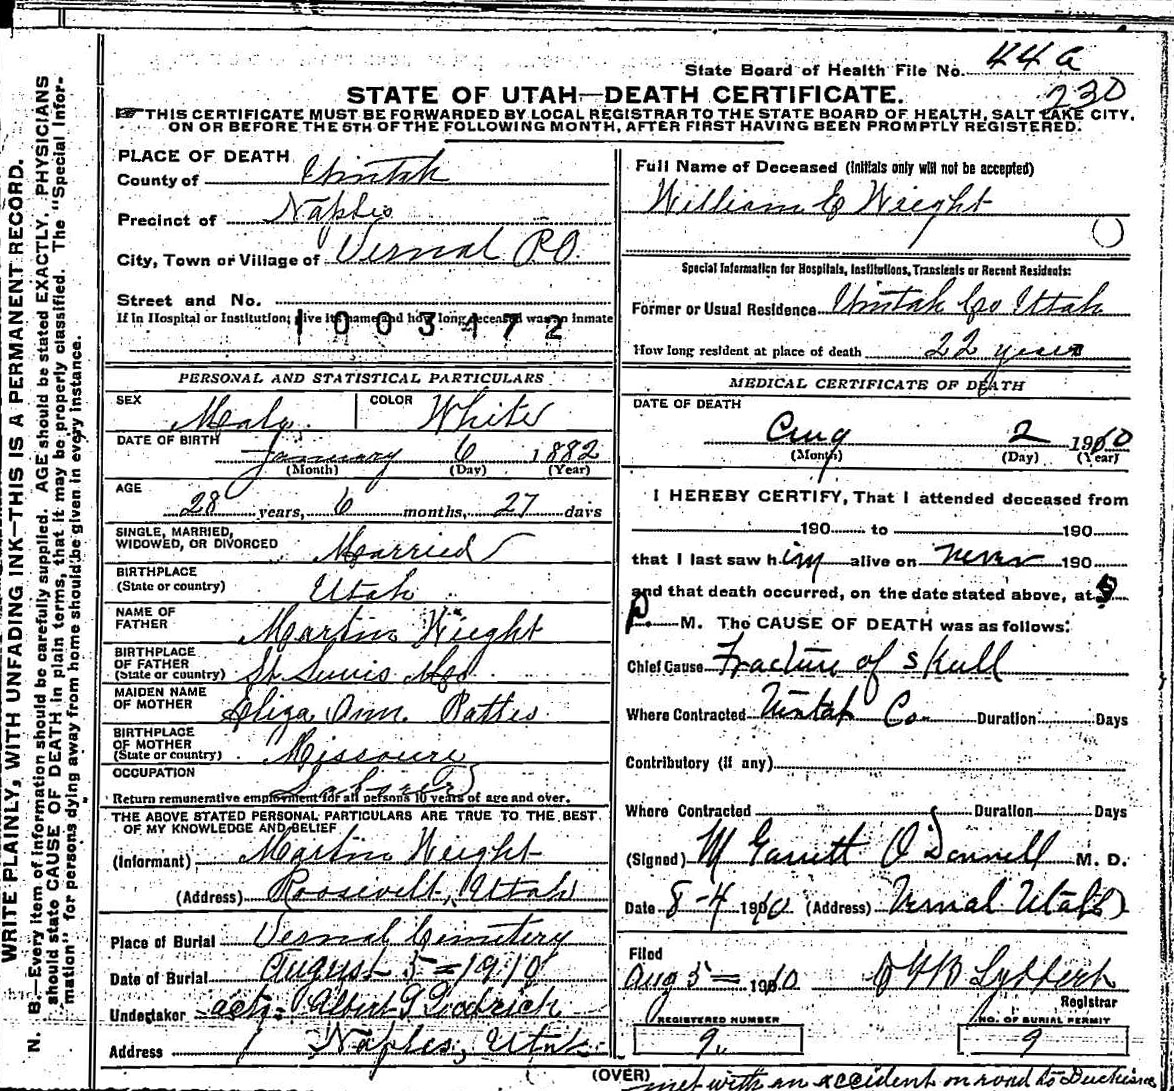 State Board of Health File No. 44 a
230
STATE OF UTAH—DEATH CERTIFICATE.
THIS CERTIFICATE MUST BE FORWARDED BY LOCAL REGISTRAR TO THE STATE BOARD OF HEALTH, SALT LAKE CITY,
ON OR BEFORE THE 5TH OF THE FOLLOWING MONTH, AFTER FIRST HAVING BEEN PROMPTLY REGISTERED.
WRITE PLAINLY, WITH UNFADING INK—THIS IS A PERMANENT RECORD.
N. B.—Every item of information should be carefully supplied. AGE should be stated EXACTLY. PHYSICIANS
should state CAUSE OF DEATH in plain terms, that it may be properly classified. The "Special Infor-
mation" for persons dying away from home should be given in every instance.
PLACE OF DEATH
County of Uintah
Precinct of Naples
City, Town or Village of Vernal P.O.
Street and No.
If in Hospital or Institution, give its name and how long deceased was an inmate
1003172
PERSONAL AND STATISTICAL PARTICULARS
SEX Male COLOR White
DATE OF BIRTH January 6 1882
(Month) (Day) (Year)
AGE
28 years, 6 months, 27 days
SINGLE, MARRIED,
WIDOWED, OR DIVORCED Married
BIRTHPLACE
(State or country) Utah
NAME OF
FATHER Martin Wright
BIRTHPLACE
OF FATHER
(State or country) St Louis Mo
MAIDEN NAME
OF MOTHER Eliza Ann
BIRTHPLACE
OF MOTHER
(State or country) Missouri
OCCUPATION Laborer
Return remunerative employment for all persons 10 years of age and over.
THE ABOVE STATED PERSONAL PARTICULARS ARE TRUE TO THE BEST
OF MY KNOWLEDGE AND BELIEF
(Informant) Martin Wright
(Address) Roosevelt, Utah
Place of Burial Vernal Cemetery
Date of Burial August 5=1910
Undertaker Albert G Goodrich
Address Naples, Utah
Full Name of Deceased (Initials only will not be accepted)
William E Wright
Special Information for Hospitals, Institutions, Transients or Recent Residents:
Former or Usual Residence Uintah Co Utah
How long resident at place of death 22 years
MEDICAL CERTIFICATE OF DEATH
DATE OF DEATH
Aug 2 1910
(Month) (Day) (Year)
I HEREBY CERTIFY, That I attended deceased from
190 to 190
that I last saw him alive on never 190
and that death occurred, on the date stated above, at 5
P. M. The CAUSE OF DEATH was as follows:
Chief Cause Fracture of skull
Where Contracted Uintah Co Duration Days
Contributory (if any)
Where Contracted Duration Days
(Signed) M Garrett O'Donnell M. D.
Date 8-4 1910 (Address) Vernal Utah
Filed
Aug 5= 1910
Registrar
REGISTERED NUMBER
9
NO. OF BURIAL PERMIT
9
(OVER)
met with an accident on road to